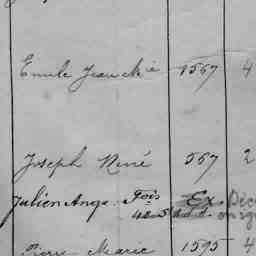 Emile Jean Mie 1567 4
Joseph René 567 2
Julien Ange. Fois Ex Déc
42e Sta.d.d. orig
Pierre Marie 1595 4